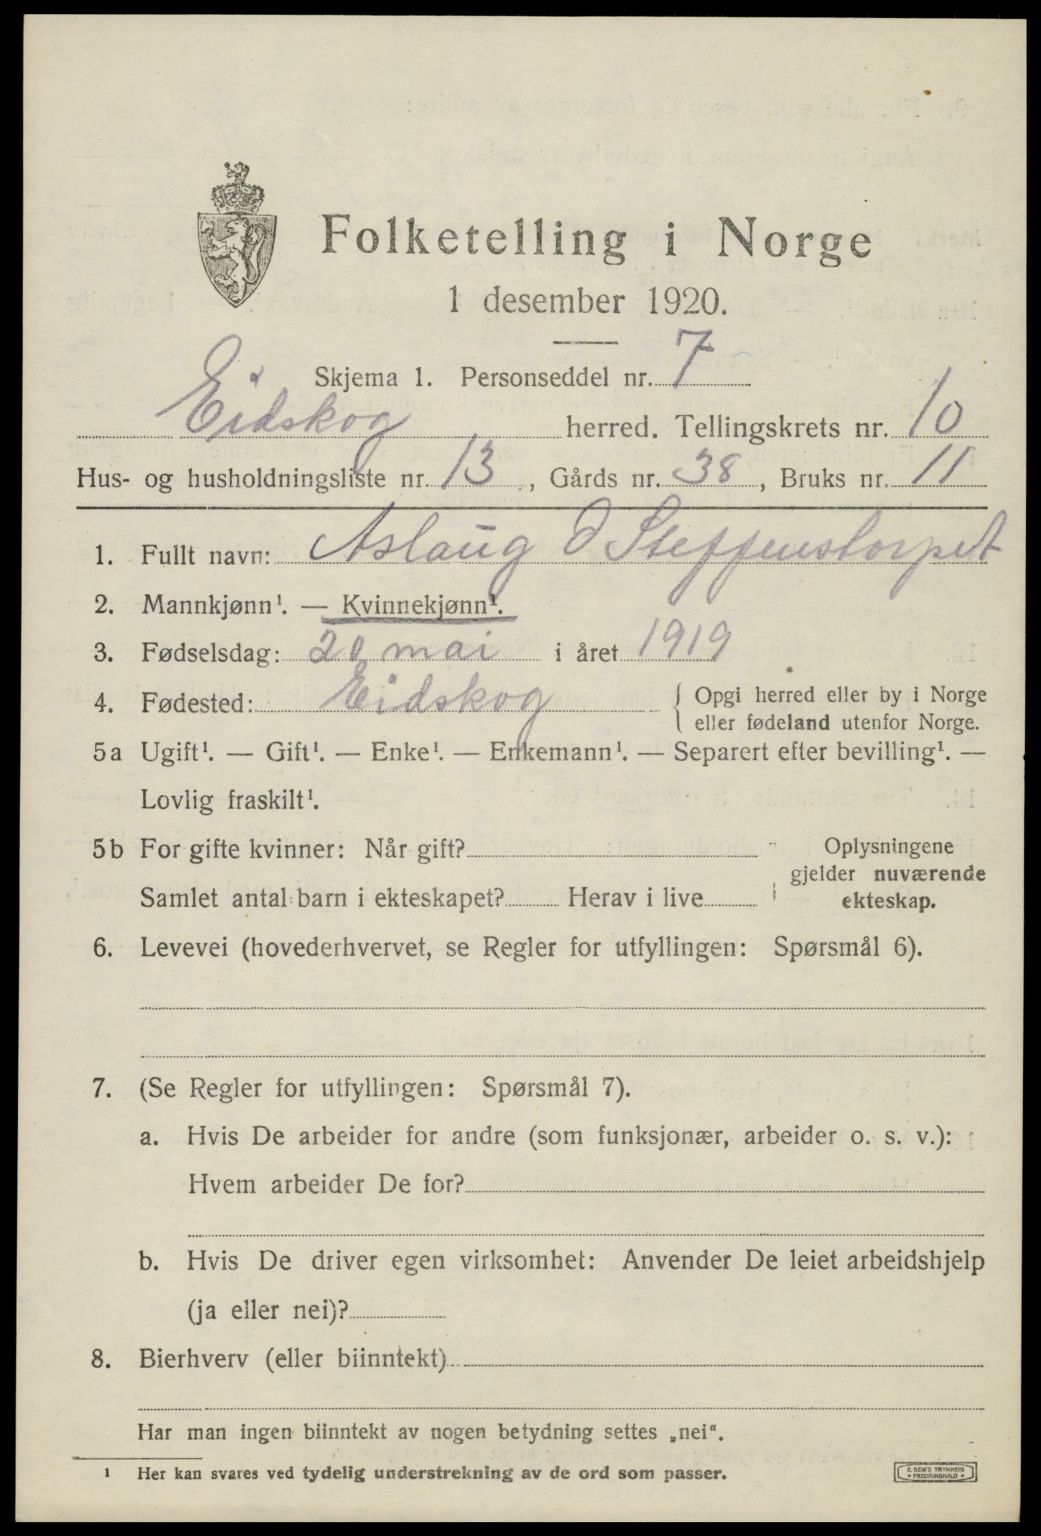 Folketelling i Norge
1 desember 1920.
Skjema 1. Personseddel nr. 7
Eidskog herred. Tellingskrets nr. 10
Hus- og husholdningsliste nr. 13, Gårds nr. 38, Bruks nr. 11
1. Fullt navn: Aslaug O Steffenstorpet
2. Mannkjønn¹. — Kvinnekjønn¹.
3. Fødselsdag: 20 mai i året 1919
4. Fødested: Eidskog { Opgi herred eller by i Norge
eller fødeland utenfor Norge.
5a Ugift¹. — Gift¹. — Enke¹. — Enkemann¹. — Separert efter bevilling¹. —
Lovlig fraskilt¹.
5b For gifte kvinner: Når gift? Oplysningene
gjelder nuværende
Samlet antal barn i ekteskapet? Herav i live ekteskap.
6. Levevei (hovederhvervet, se Regler for utfyllingen: Spørsmål 6).
7. (Se Regler for utfyllingen: Spørsmål 7).
a. Hvis De arbeider for andre (som funksjonær, arbeider o. s. v.):
Hvem arbeider De for?
b. Hvis De driver egen virksomhet: Anvender De leiet arbeidshjelp
(ja eller nei)?
8. Bierhverv (eller biinntekt)
Har man ingen biinntekt av nogen betydning settes „nei“.
¹ Her kan svares ved tydelig understrekning av de ord som passer.